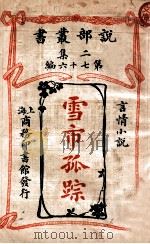 書叢部說
二集
第七十六編
言情小說
雪市孤踪
上海
商務印書館發行